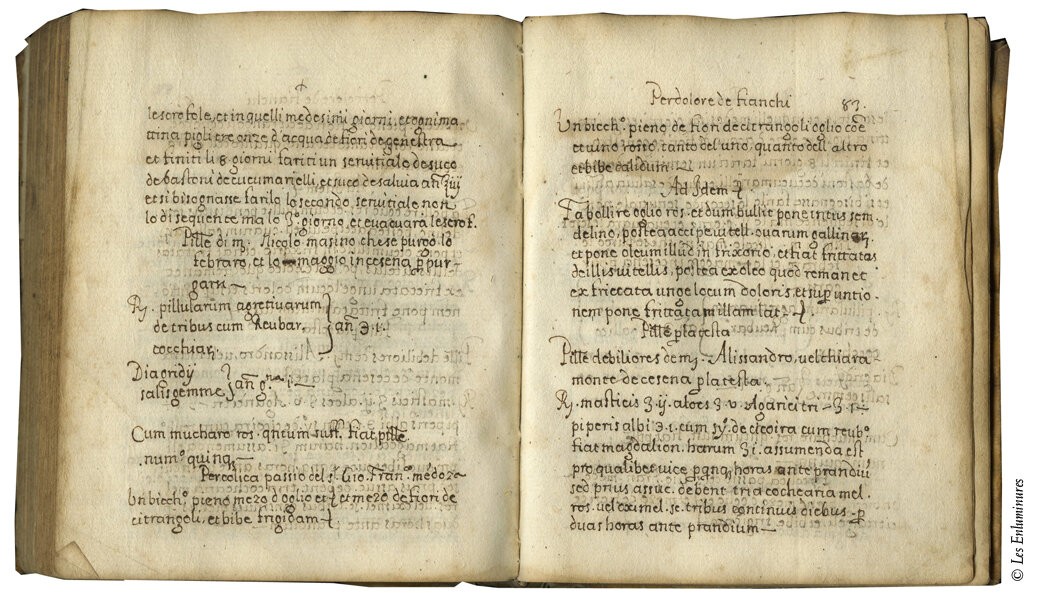 le scrofole, et in quelli medesimi giorni, et ogni ma
ttina pigli tre onze d'acqua de fiori de genestra
et finiti li 8 giorni fariti un servitiale de suco
de bastoni de cucumarielli, et suco de salvia añ ℥ iiij
et si bisognasse farilo lo secondo servitiale non
lo di sequente ma lo 3. giorno, et evacuara le scrof.
Pille di m. Nicolo masino che se purgò lo
febraro, et lo maggio in cesena p pur-
garsi
R. pillularum agretivarum
de tribus cum Reubar.
cocchiar.
añ Ʒ. i.
Diagridij
salis gemme
añ g. i
Cum mucharo ros. qntum suff. fiat pille
num.º quinq.
Per colica passio del s. Gio. Fran.º medoze
Un biech.º pieno mezo d'oglio et et mezo de fiori de
citrangoli, et bibe frigidam
Per dolore de fianchi
83.
Un biech.º pieno de fiori de citrangoli oglio cõe
et vino rosso, tanto del uno, quanto dell' altro
et bibe calidum
Ad Idem
Fa bollire oglio ros. et dum bullit pone intus sem.
de lino, postea accipe vitell. ovarum gallinar.
et pone oleum illud in frixorio, et fiat frittatas
dellis vitellis, postea ex oleo quod remanet
ex frittata unge locum doloris, et sup untio-
nem pone frittatam illam lat.
Pille p la testa
Pille debiliores de m. Alissandro, vel chiara-
monte de cesena p la testa.
R. masticis ℥. ij. aloes ℥. v. Agarici tri ℥ i
piperis albi Ʒ. i. cum sy. de cicoira cum reub.º
fiat magdalion. harum Ʒ i. assumenda est
pro qualibet vice p qnq. horas ante prandiũ
sed prius assue. debent tria cochearia mel.
ros. vel oximel. se. tribus continuis diebus p
duas horas ante prandium
© Les Enluminures